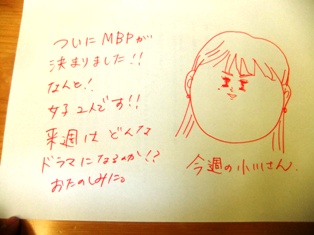 ついにMBPが
決まりました!!
なんと!
女子2人です!!
来週は どんな
ドラマになるのか!?
おたのしみに。
今週の小川さん.